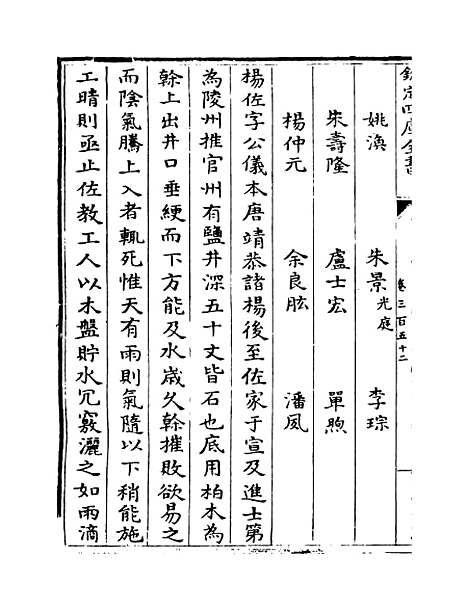 欽定四庫全書
卷三百五十二
姚渙 朱景光庭 李琮
朱壽隆 盧士宏 單煦
楊仲元 余良肱 潘夙
楊佐字公儀本唐靖恭諸楊後至佐家于宣及進士第
為陵州推官州有鹽井深五十丈皆石也底用柏木為
榦上出井口垂綆而下方能及水歳久榦摧敗欲易之
而陰氣騰上入者輒死惟天有雨則氣隨以下稍能施
工晴則亟止佐教工人以木盤貯水冗竅灑之如雨滴